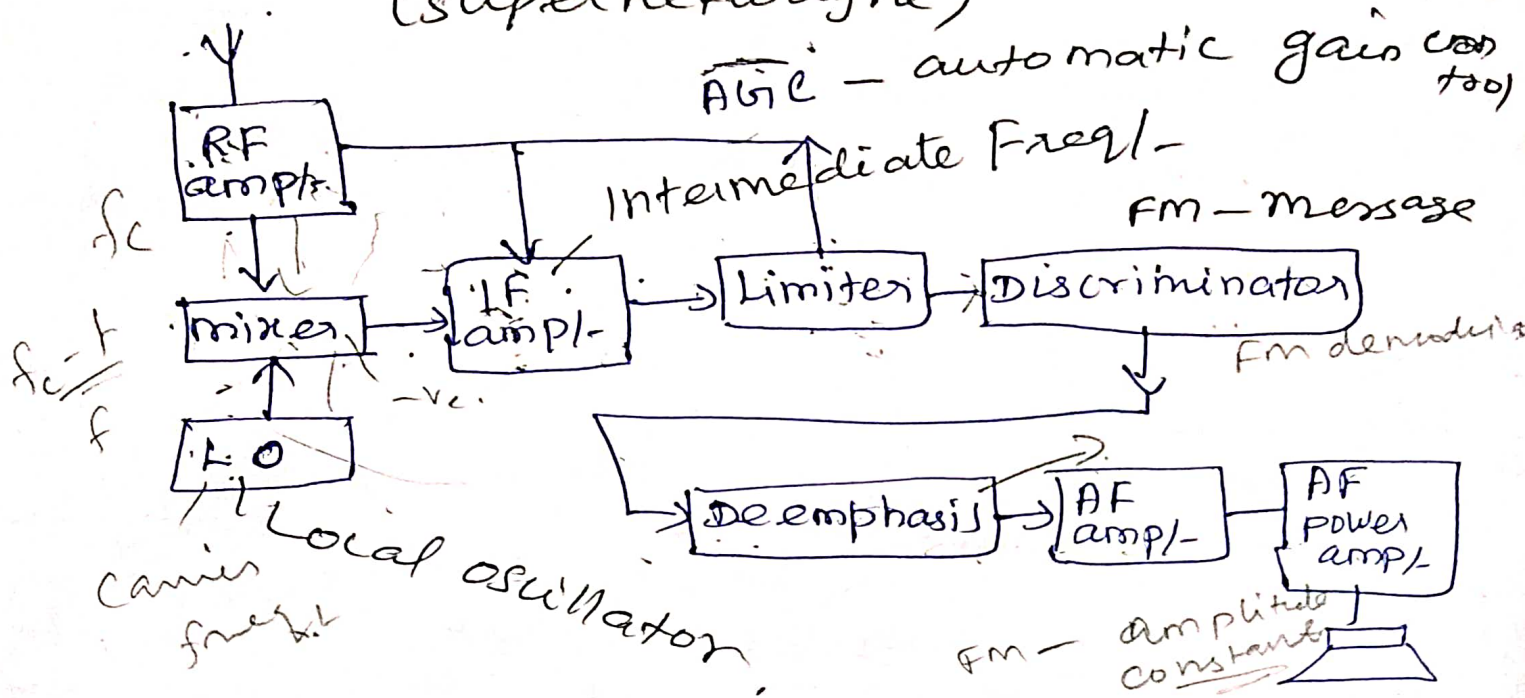 (superheterodyne)
AGC - automatic gain con
trol
RF
ampr.
Intermediate Freq/-
FM - message
fc
mixer
IF
amp/-
Limiter
Discriminator
-ve.
f
L O
Local oscillator
Carrier
Deemphasis
AF
amp/-
AF
power
amp/-
FM - amplitude
constant